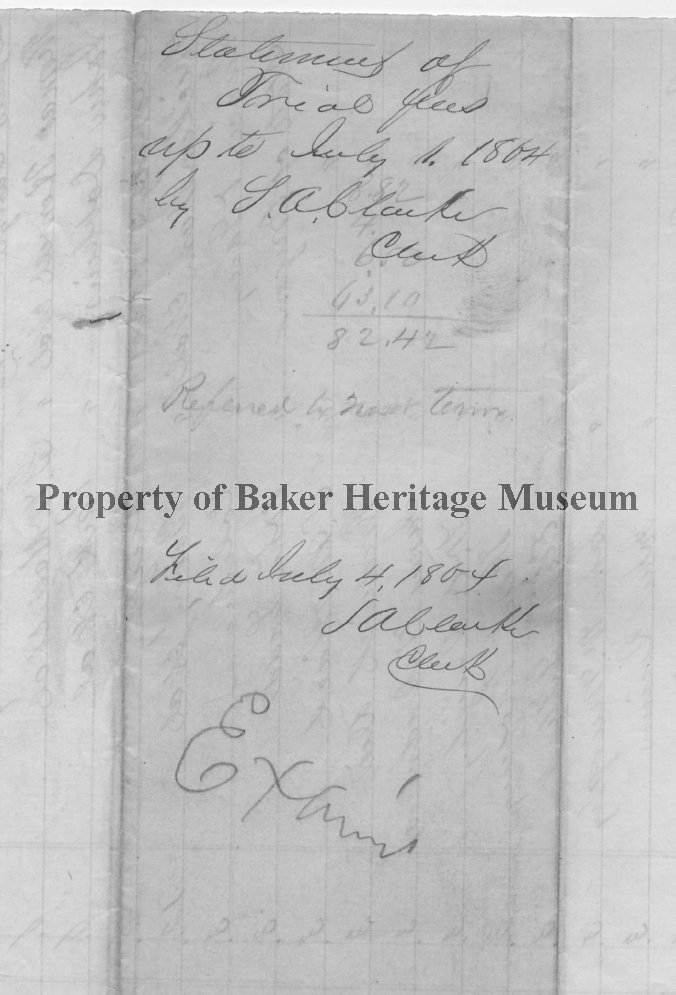 Statement of
Trial fees
up to July 1. 1864
by S.A. Clarke
Clerk
63.10
82.42
Referred to next term.
Property of Baker Heritage Museum
Filed July 4, 1864
S A Clarke
Clerk
Exam'